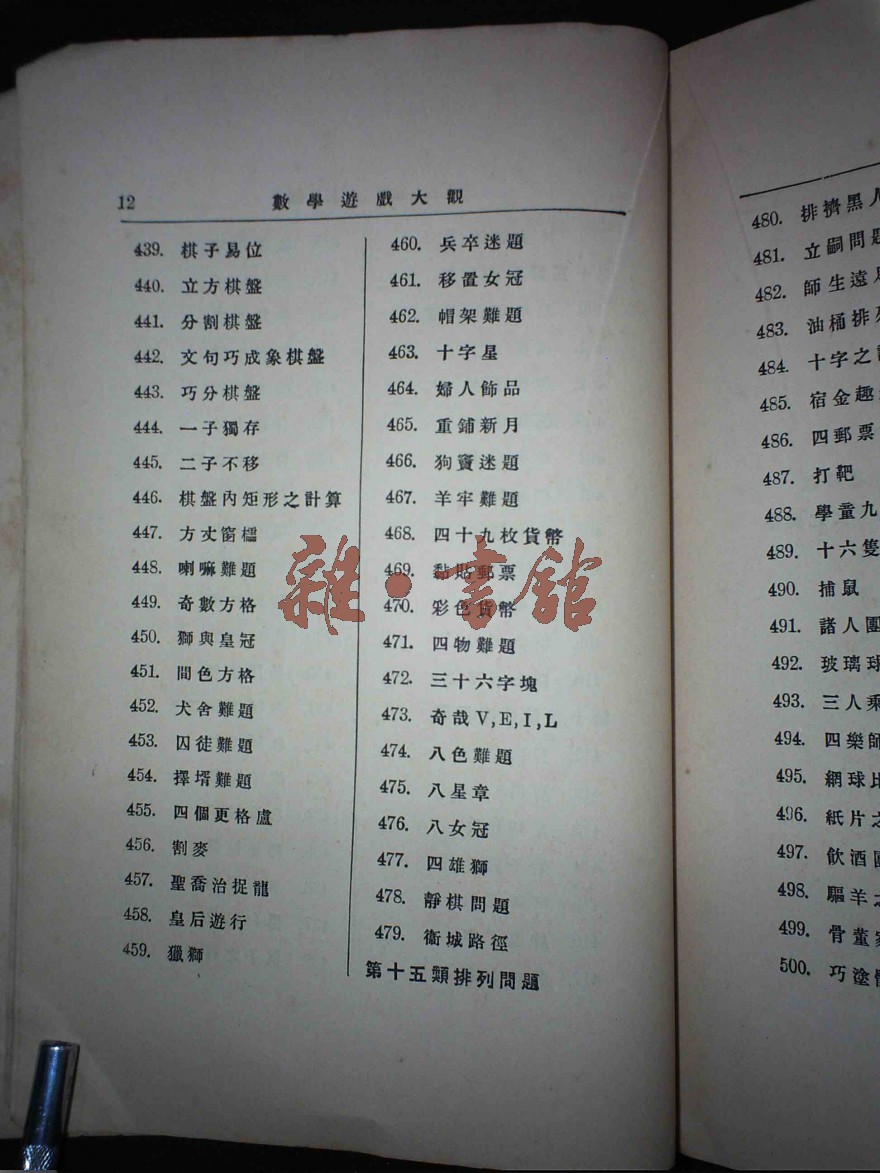 12 數學遊戲大觀
439. 棋子易位
440. 立方棋盤
441. 分割棋盤
442. 文句巧成象棋盤
443. 巧分棋盤
444. 一子獨存
445. 二子不移
446. 棋盤內矩形之計算
447. 方丈窗櫺
448. 喇嘛難題
449. 奇數方格
450. 獅與皇冠
451. 間色方格
452. 犬舍難題
453. 囚徒難題
454. 擇壻難題
455. 四個更格盧
456. 割麥
457. 聖喬治捉龍
458. 皇后遊行
459. 獵獅
460. 兵卒迷題
461. 移置女冠
462. 帽架難題
463. 十字星
464. 婦人飾品
465. 重鋪新月
466. 狗竇迷題
467. 羊牢難題
468. 四十九枚貨幣
469. 黏貼郵票
470. 彩色貨幣
471. 四物難題
472. 三十六字塊
473. 奇哉V,E,I,L
474. 八色難題
475. 八星章
476. 八女冠
477. 四雄獅
478. 靜棋問題
479. 衞城路徑
第十五類排列問題
雜·書館
480. 排擠黑人
481. 立嗣問題
482. 師生遠足
483. 油桶排列
484. 十字之
485. 宿金趣
486. 四郵票
487. 打靶
488. 學童九
489. 十六隻
490. 捕鼠
491. 諸人團
492. 玻璃球
493. 三人乘
494. 四樂師
495. 網球比
496. 紙片之
497. 飲酒
498. 驅羊之
499. 骨董
500. 巧塗